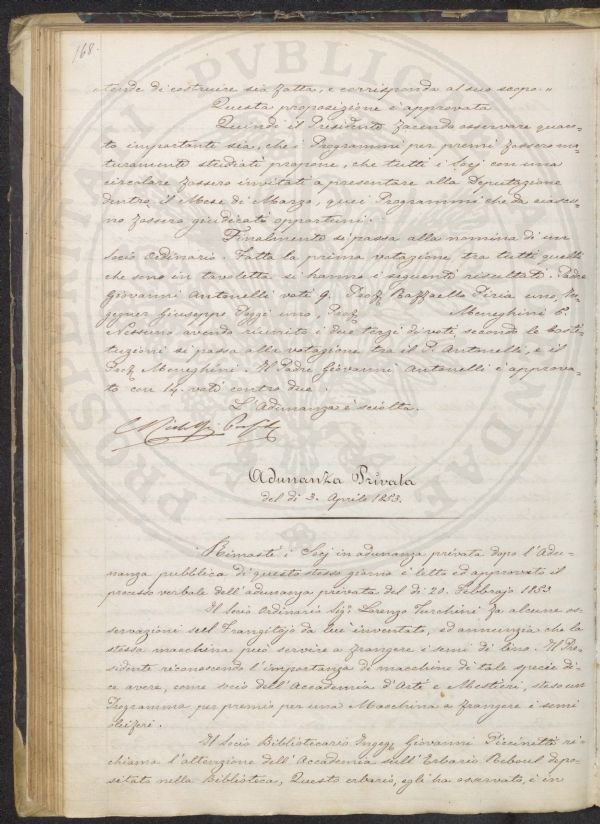 168.
tende di costruire sia fatta, e corrisponda al suo scopo. „
Questa proposizione è approvata
Quindi il Presidente facendo osservare quan-
to importante sia, che i Programmi per premi fossero ma-
turamente studiati propone, che tutti i Socj con una
circolare fossero invitati a presentare alla Deputazione
dentro il Mese di Marzo, quei Programmi che da ciascu-
no fossero giudicati opportuni.
Finalmente si passa alla nomina di un
Socio Ordinario. Fatta la prima votazione tra tutti quelli
che sono in tavoletta si hanno i seguenti resultati. Padre
Giovanni Antonelli voti 9. Prof. Raffaello Piria uno, In-
gegner Giuseppe Poggi uno, Prof. Meneghini
Nessuno avendo riunito i due terzi di voti secondo le Costi-
tuzioni si passa alla votazione tra il P. Antonelli, e il
Prof. Meneghini. Il Padre Giovanni Antonelli è approva-
to con 14. voti contro due.
L'Adunanza è sciolta.
Adunanza Privata
del dì 3. Aprile 1853.
Rimasti i Socj in adunanza privata dopo l'Adu-
nanza pubblica di questo stesso giorno è letto ed approvato il
processo verbale dell'adunanza privata del dì 20. Febbrajo 1853
Il Socio Ordinario Sig. Lorenzo Turchini fa alcune os-
servazioni sul Frangitojo da lui inventato, ed annunzia che la
stessa macchina può servire a frangere i semi di lino. Il Pre-
sidente riconoscendo l'importanza di macchine di tale specie di-
ce avere, come socio dell'Accademia d'Arti e Mestieri, steso un
Programma per premio per una Macchina a frangere i semi
oleiferi.
Il Socio Bibliotecario Ingeg. Giovanni Piccinetti ri-
chiama l'attenzione dell'Accademia sull'Erbario Reboul depo-
sitato nella Biblioteca, Questo erbario, egli ha osservato, è in
PROSPERITATI PUBLICAE AUGENDAE